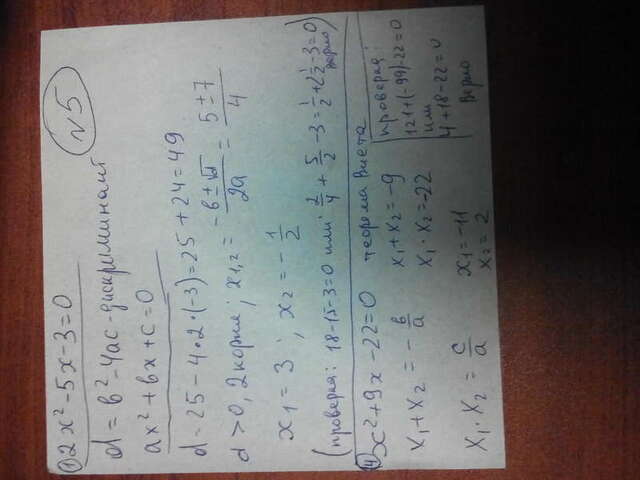 №5
① 2x²-5x-3=0
d=b²-4ac-дискриминант
ax²+bx+c=0
d=25-4*2*(-3)=25+24=49
d>0, 2 корня; x₁,₂ = (-b±√d)/2a = (5±7)/4
x₁=3; x₂=-1/2
(проверка: 18-15-3=0 или: 2/4+5/2-3=1/2+2 1/2-3=0) верно
④ x²+9x-22=0 теорема Виета
x₁+x₂=-b/a x₁+x₂=-9
x₁·x₂=c/a x₁·x₂=-22
x₁=-11
x₂=2
проверка:
121+(-99)-22=0
или
4+18-22=0
верно